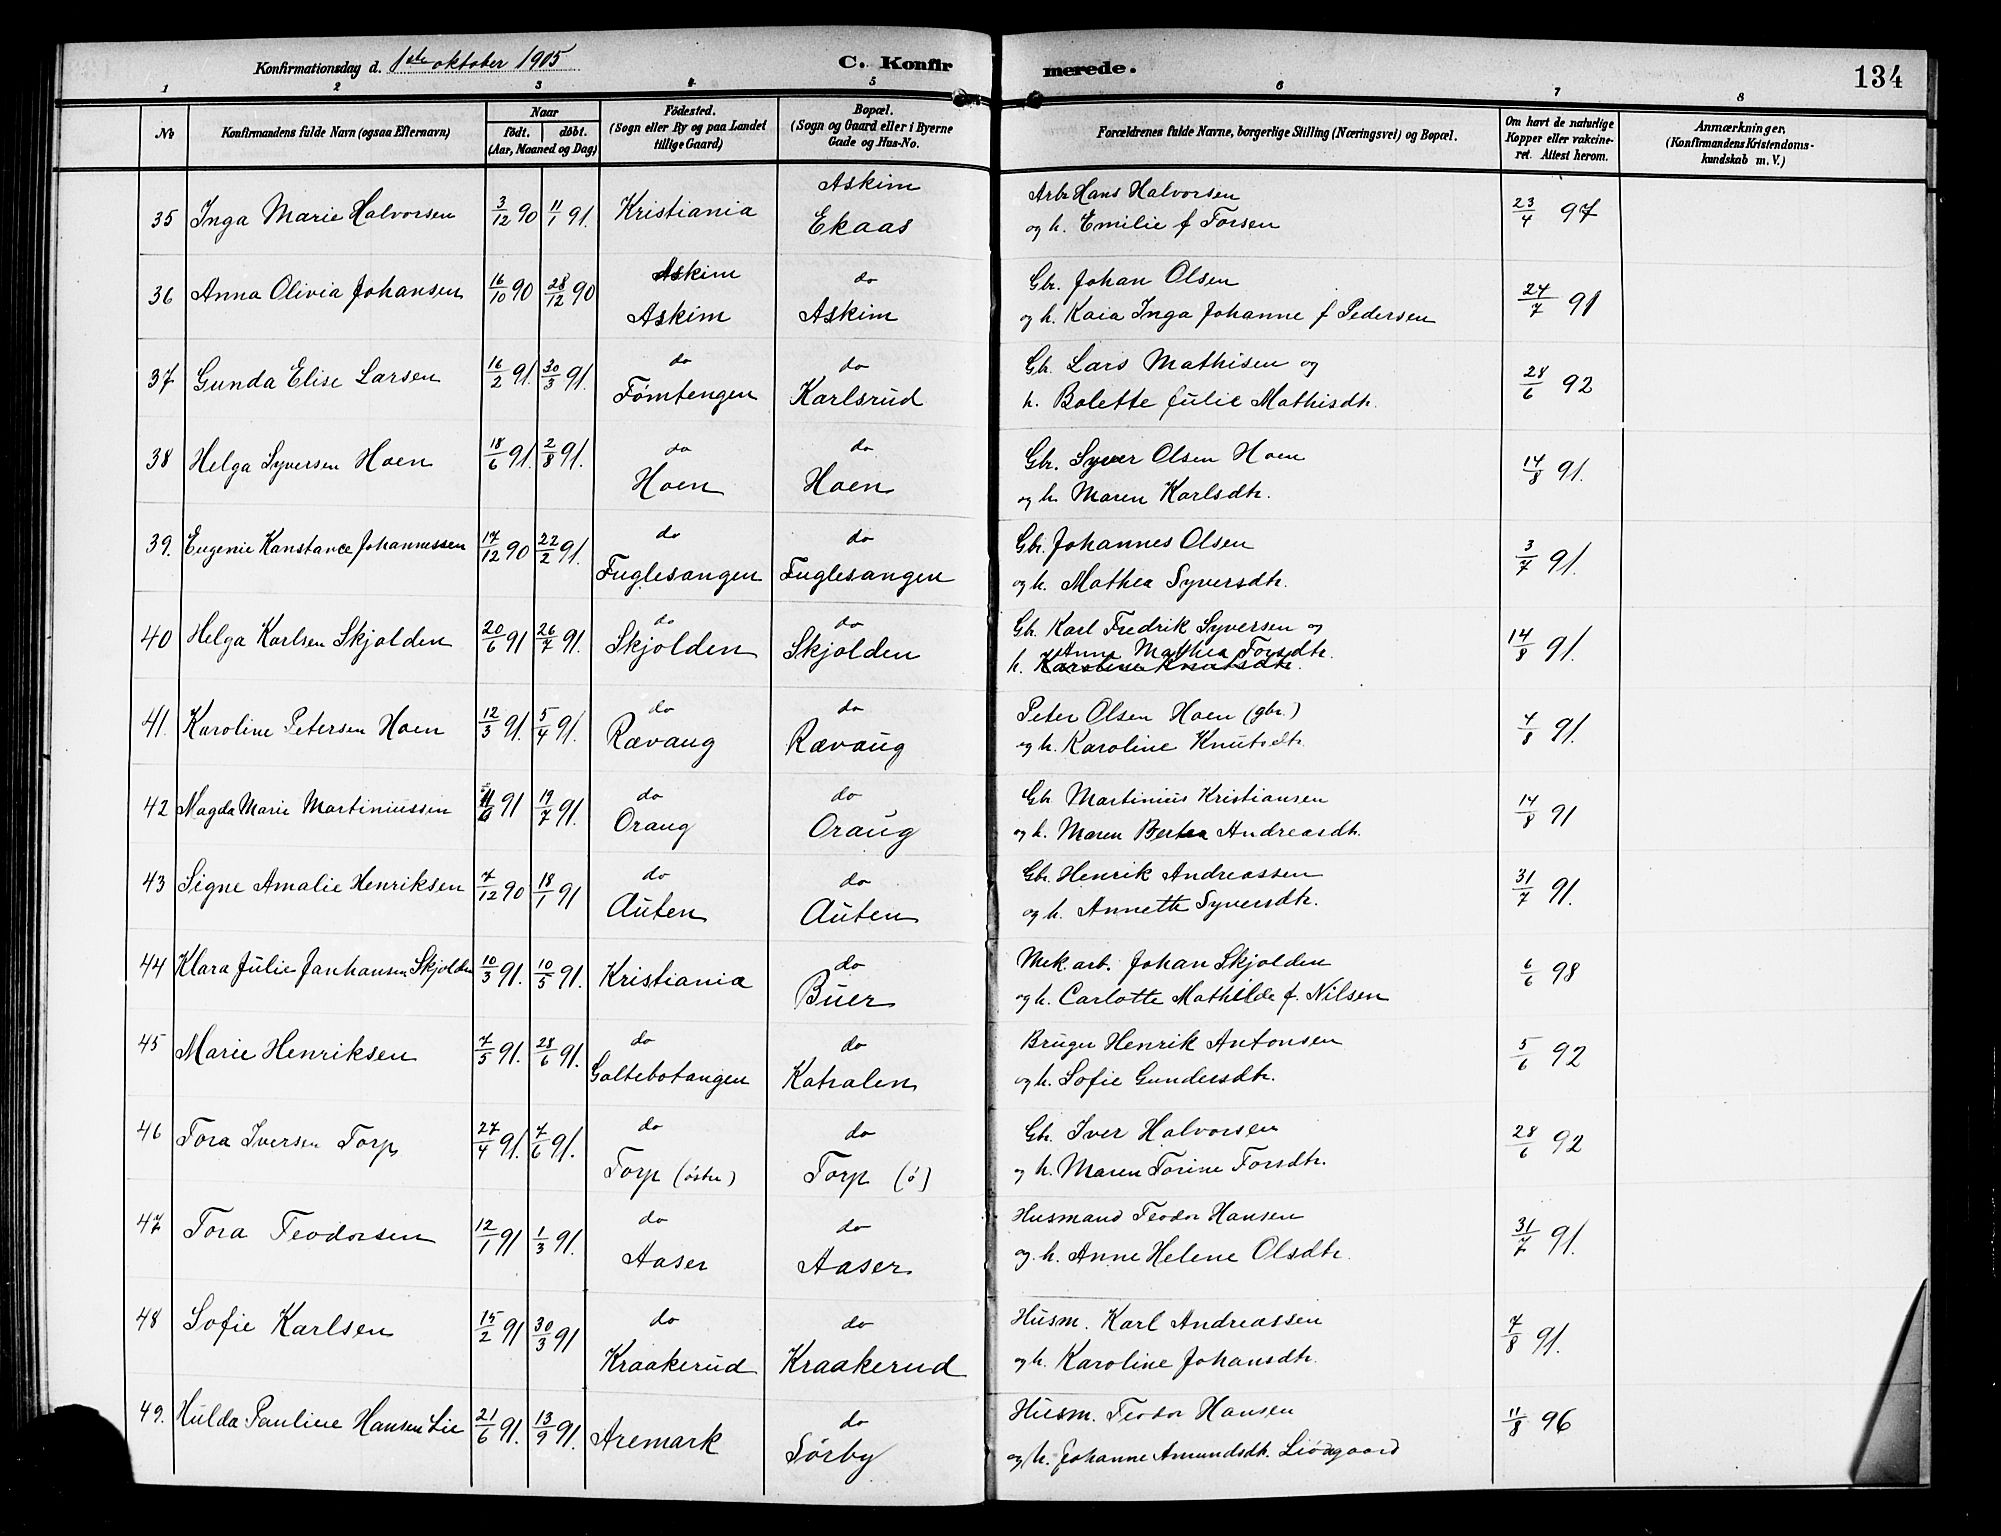 Konfirmationsdag d. 1ste oktober 1905
C. Konfirmerede.
134
1 2 3 4 5 6 7 8
No
Konfirmandens fulde Navn (ogsaa Efternavn)
Naar
födt. döbt.
(Aar, Maaned og Dag)
Födested.
(Sogn eller By og paa Landet
tillige Gaard)
Bopæl.
(Sogn og Gaard eller i Byerne
Gade og Hus-No.
Forældrenes fulde Navne, borgerlige Stilling (Næringsvei) og Bopæl.
Om havt de naturlige
Kopper eller vakcine-
ret. Attest herom.
Anmærkninger.
(Konfirmandens Kristendoms-
kundskab m. V.)
35 Inga Marie Halvorsen 3/12 90 11/1 91. Kristiania Askim Ekaas Arb. Hans Halvorsen 23/4 97
og h. Emilie f Torsen
36 Anna Olivia Johansen 16/10 90 28/12 90 Askim Askim do Askim Gbr. Johan Olsen 24/7 91
og h. Kaia Inga Johanne f Pedersen
37 Gunda Elise Larsen 16/2 91. 30/3 91. do Tømtengen do Karlsrud Gbr. Lars Mathisen og 28/6 92
h. Bolette Julie Mathisdtr.
38 Helga Syversen Hoen 18/6 91. 2/8 91. do Hoen do Hoen Gbr. Syver Olsen Hoen 14/8 91.
og h. Maren Karlsdtr.
39. Eugenie Konstance Johannessen 17/12 90 22/2 91. do Fuglesangen do Fuglesangen Gbr. Johannes Olsen 3/7 91.
og h. Mathea Syversdtr.
40 Helga Karlsen Skjolden 20/6 91 26/7 91. do Skjolden do Skjolden Gbr. Karl Fredrik Syversen og 14/8 91.
Anne Mathea Torsdtr.
h. Karoline Knutsdtr.
41. Karoline Petersen Hoen 12/3 91. 5/4 91. do Rævaug do Rævaug Peter Olsen Hoen (gbr.) 4/8 91.
og h. Karoline Knutsdtr.
42 Magda Marie Martiniussen 91 19/7 91. do Oraug do Oraug Gbr Martinius Kristiansen 14/8 91
og h. Maren Bertea Andreasdtr.
43 Signe Amalie Henriksen 7/12 90 18/1 91 do Auten do Auten Gbr. Henrik Andreassen 31/7 91.
og h. Annette Syversdtr.
44 Klara Julie Janhansen Skjolden 10/3 91. 10/5 91. Kristiania do Buer Mek. arb. Johan Skjolden 6/6 98
og h. Carlotte Mathilde f. Nilsen
45 Marie Henriksen 7/5 91. 28/6 91. do Galtebotangen do Katralen Bruger Henrik Antonsen 5/6 92
og h. Sofie Gundersdtr.
46 Tora Iversen Torp 27/4 91. 7/6 91. do Torp (östre) do Torp (ö) Gbr. Iver Halvorsen 28/6 92
og h. Maren Torine Torsdtr.
47 Tora Teodorsen 12/1 91 1/3 91. do Aaser do Aaser Husmand Teodor Hansen 31/7 91.
og h. Anne Helene Olsdtr.
48 Sofie Karlsen 15/2 91 30/3 91 do Kraakerud do Kraakerud Husm. Karl Andreassen 7/8 91.
og h. Karoline Johansdtr.
49. Hulda Pauline Hansen Lie 21/6 91. 13/9 91. Aremark do Sörby Husm. Teodor Hansen 11/8 96
og h. Johanne Amundsdtr.